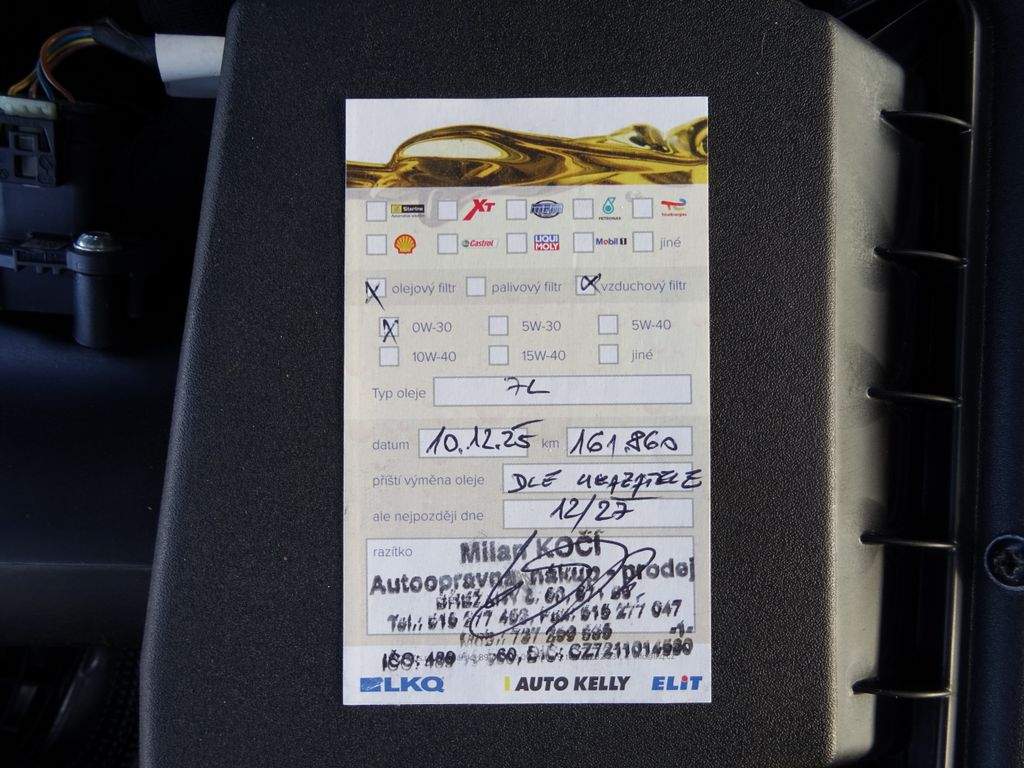 Starline XT PETRONAS TotalEnergies
Castrol LIQUI MOLY Mobil 1 jiné
olejový filtr palivový filtr vzduchový filtr
0W-30 5W-30 5W-40
10W-40 15W-40 jiné
Typ oleje 7L
datum 10.12.25 km 161.860
příští výměna oleje DLE UKAZATELE
ale nejpozději dne 12/27
razítko
Milan KOČÍ
Autoopravna, nákup - prodej
Tel.: 516 277 463, Fax: 516 277 047
-1-
IČO: 489 60, DIČ: CZ7211014530
LKQ AUTO KELLY ELIT